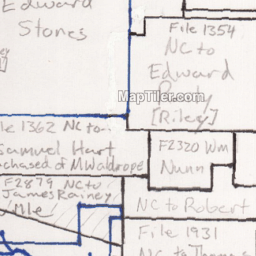 Edward
Stones
File 1354
NC to
Edward
[Riley]
MapTiler.com
le 1362 NC to
Samuel Hart
chased of M Waldrope
F2320 Wm
Nunn
F2879 NC to
James Rainey
NC to Robert
File 1931
NC to Thomas